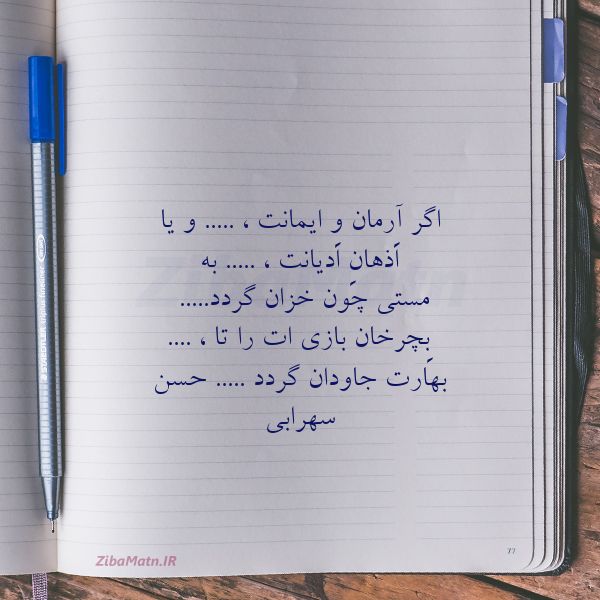 اگر آرمان و ایمانت ، ..... و یا
اَذهانِ اَدیانت ، ..... به
مستی چون خزان گردد.....
بِچرخان بازی ات را تا ، ....
بهارت جاودان گردد ..... حسن
سهرابی
ZibaMatn.IR